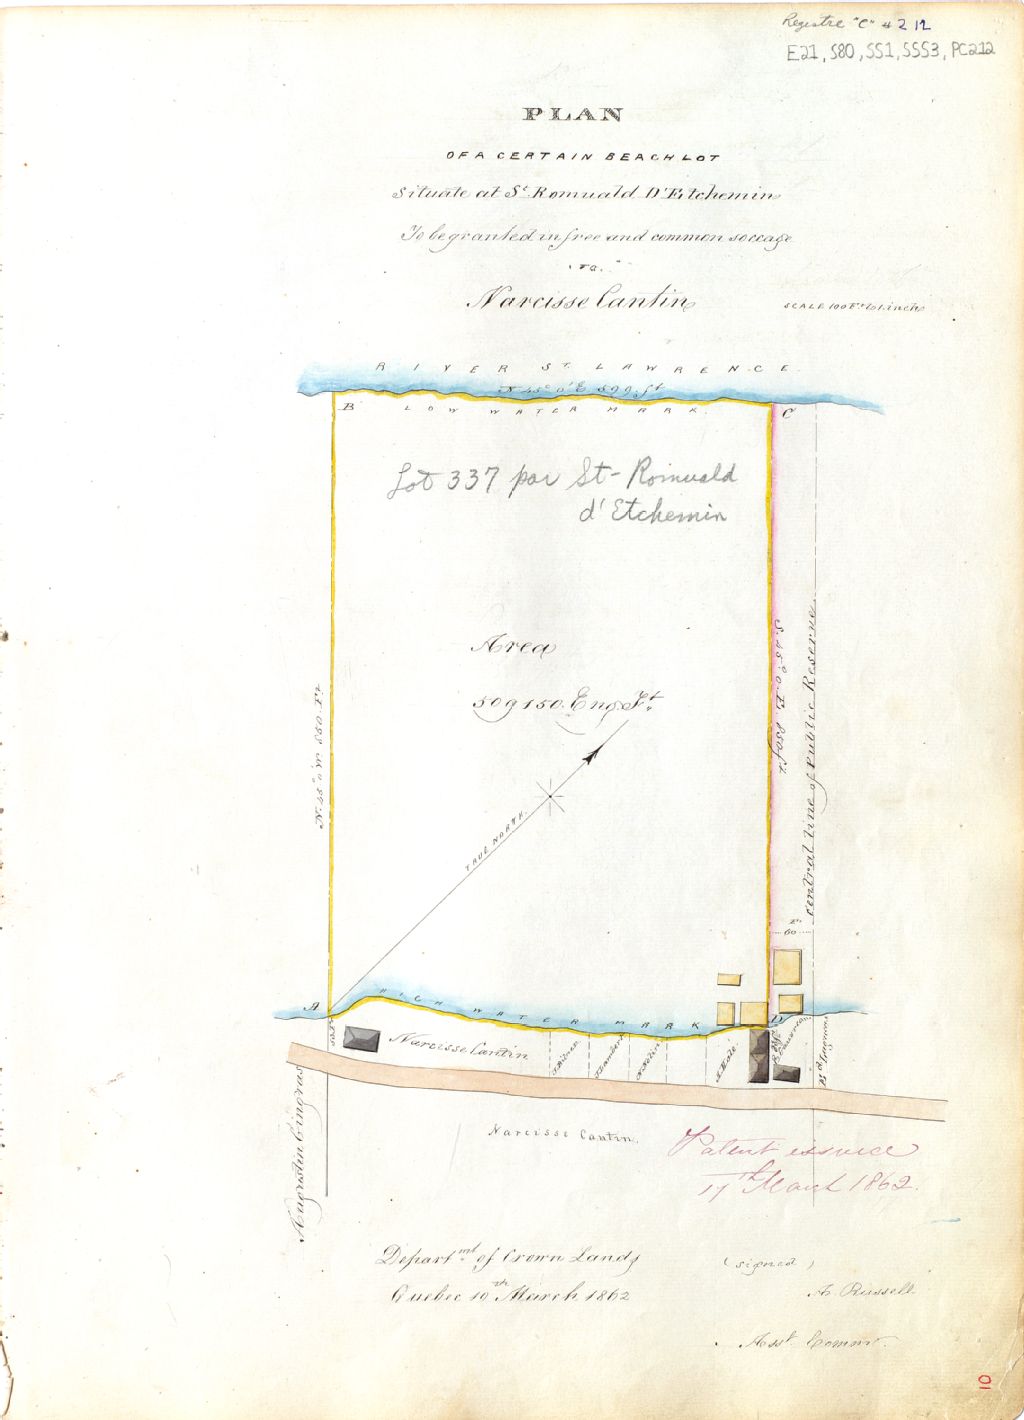 Registre "C" # 212
E21, S80, SS1, SSS3, PC212
PLAN
OF A CERTAIN BEACH LOT
Situate at St. Romuald D'Etchemin
To be granted in free and common soccage
TO
Narcisse Cantin
SCALE 100 Ft to 1 inch
RIVER ST. LAWRENCE
N 45° 0' E 599 ft
B
LOW WATER MARK.
C
Lot 337 par St-Romuald
d'Etchemin
Area
509150. Eng. Ft.
TRUE NORTH.
central line of Public Reserve
Ft
60
A
HIGH WATER MARK
D
Narcisse Cantin
J. Lambert
Augustin Gingras
Narcisse Cantin.
Patent issued
17th March 1862.
Departmt. of Crown Lands
Quebec 10th March 1862
(signed)
A. Russell
Asst. Commr.
10